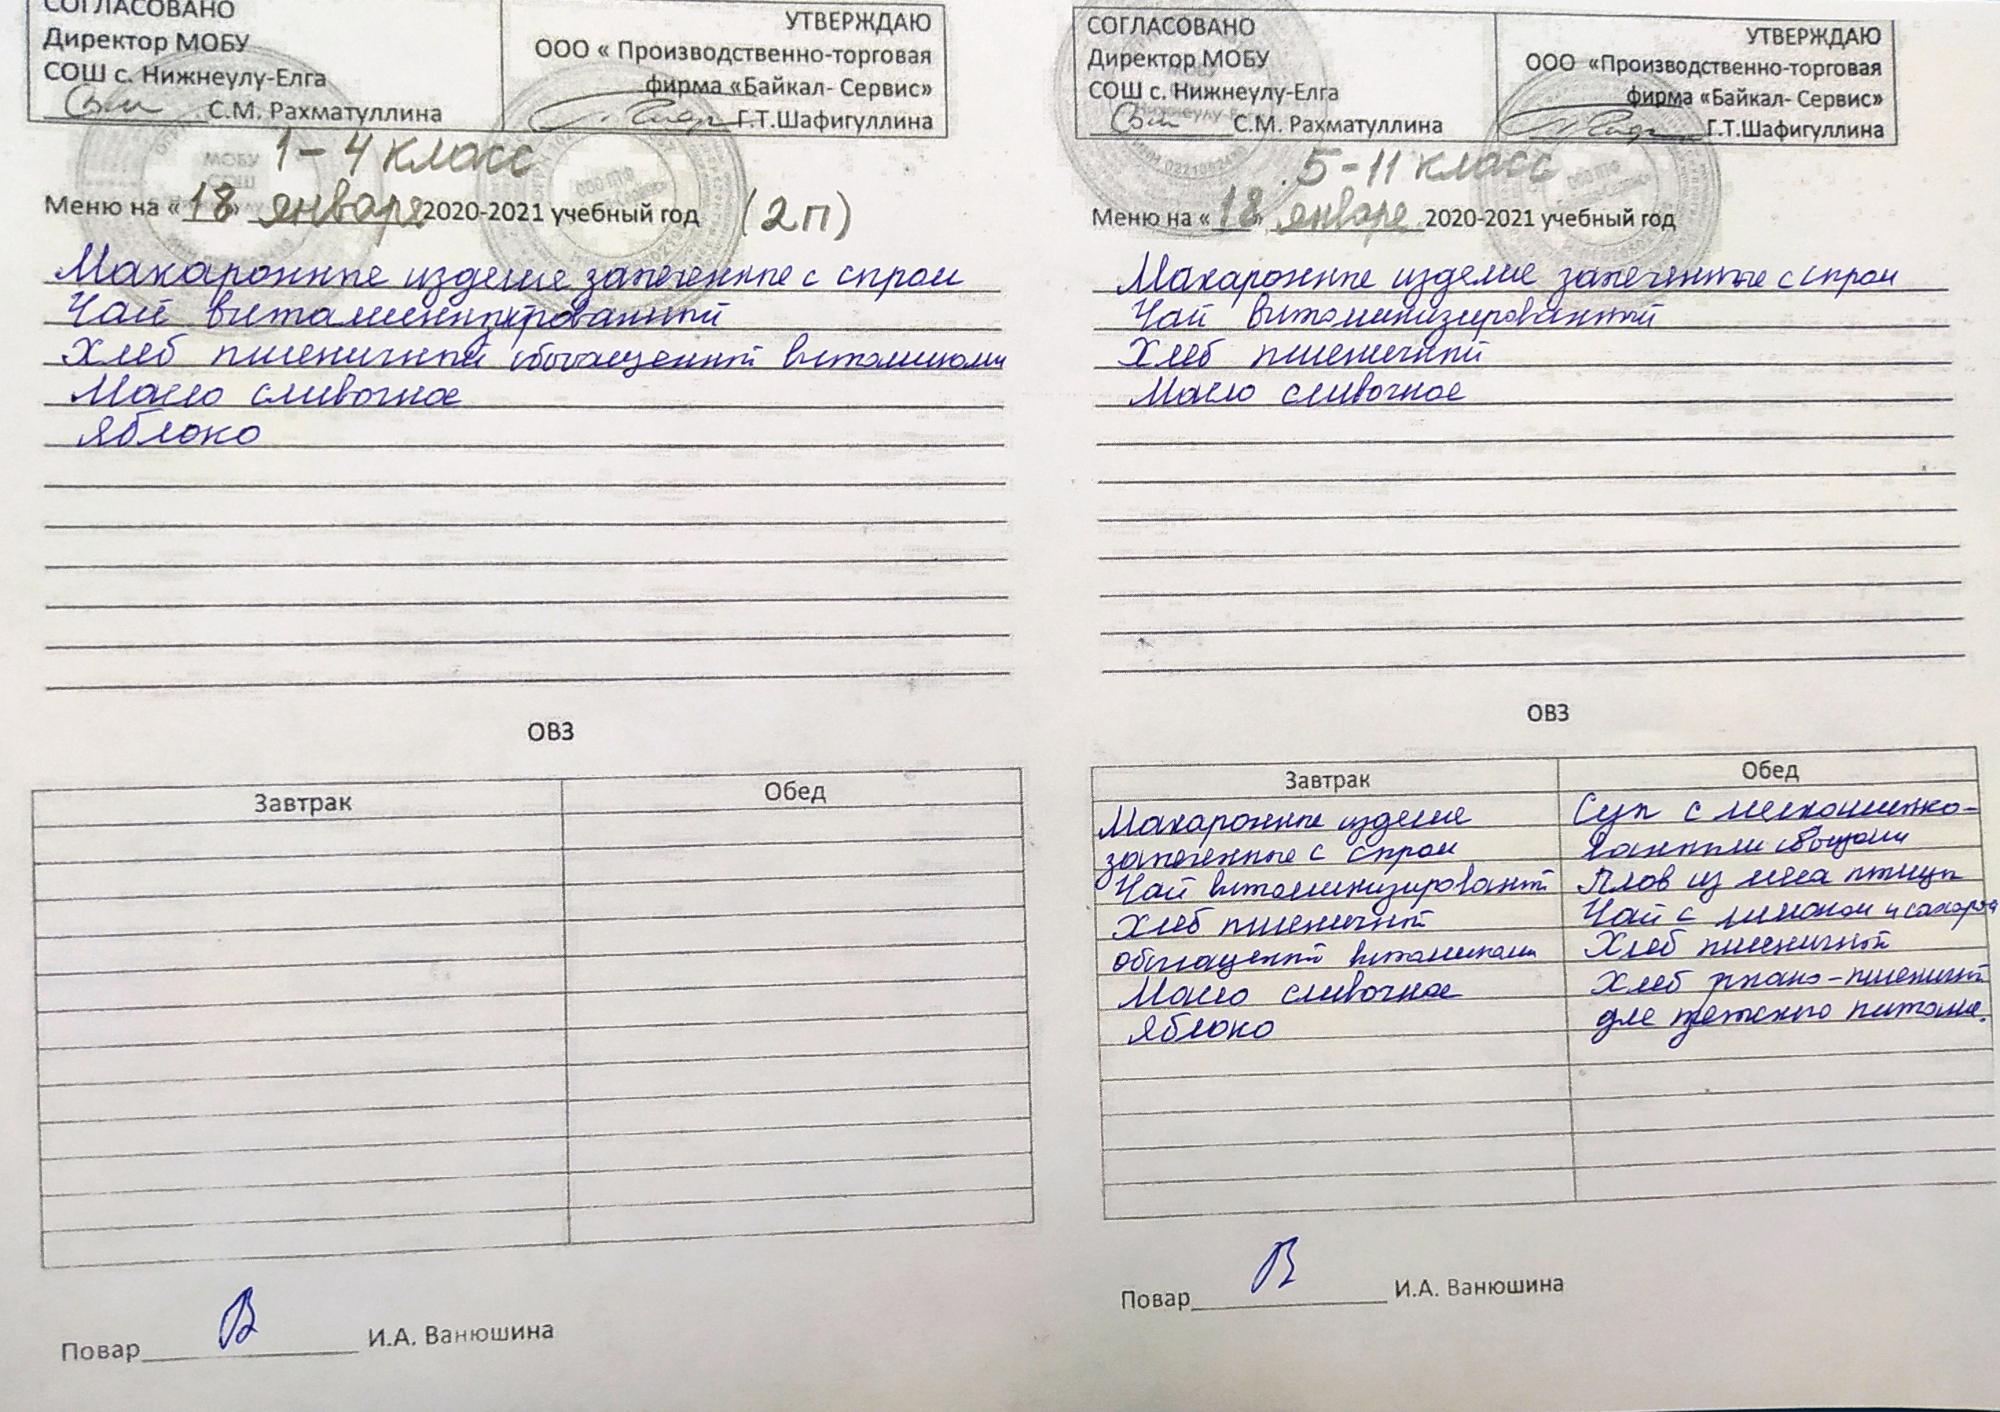 СОГЛАСОВАНО
Директор МОБУ
СОШ с. Нижнеулу-Елга
С.М. Рахматуллина
УТВЕРЖДАЮ
ООО « Производственно-торговая
фирма «Байкал- Сервис»
Г.Т.Шафигуллина
1-4 класс
Меню на «18» января 2020-2021 учебный год (2п)
Макаронные изделие запеченные с сыром
Чай витаминизированный
Хлеб пшеничный обогащенный витаминами
Масло сливочное
Яблоко
ОВЗ
Завтрак Обед
Повар И.А. Ванюшина
СОГЛАСОВАНО
Директор МОБУ
СОШ с. Нижнеулу-Елга
С.М. Рахматуллина
УТВЕРЖДАЮ
ООО «Производственно-торговая
фирма «Байкал- Сервис»
Г.Т.Шафигуллина
5-11 класс
Меню на «18» января 2020-2021 учебный год
Макаронные изделие запеченные с сыром
Чай витаминизированный
Хлеб пшеничный
Масло сливочное
ОВЗ
Завтрак
Макаронные изделие
запеченные с сыром
Чай витаминизированный
Хлеб пшеничный
обогащенный витаминами
Масло сливочное
Яблоко
Обед
Суп с мелкошинко-
ванными овощами
Плов из мяса птицы
Чай с лимоном и сахаром
Хлеб пшеничный
Хлеб ржано-пшеничный
для детского питания.
Повар И.А. Ванюшина